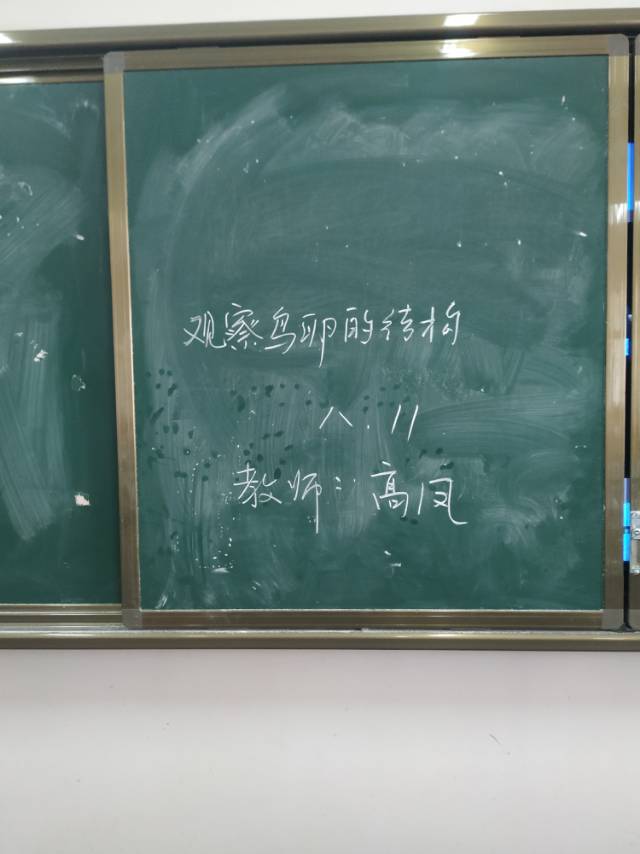 观察鸟卵的结构
八.11
教师:高凤